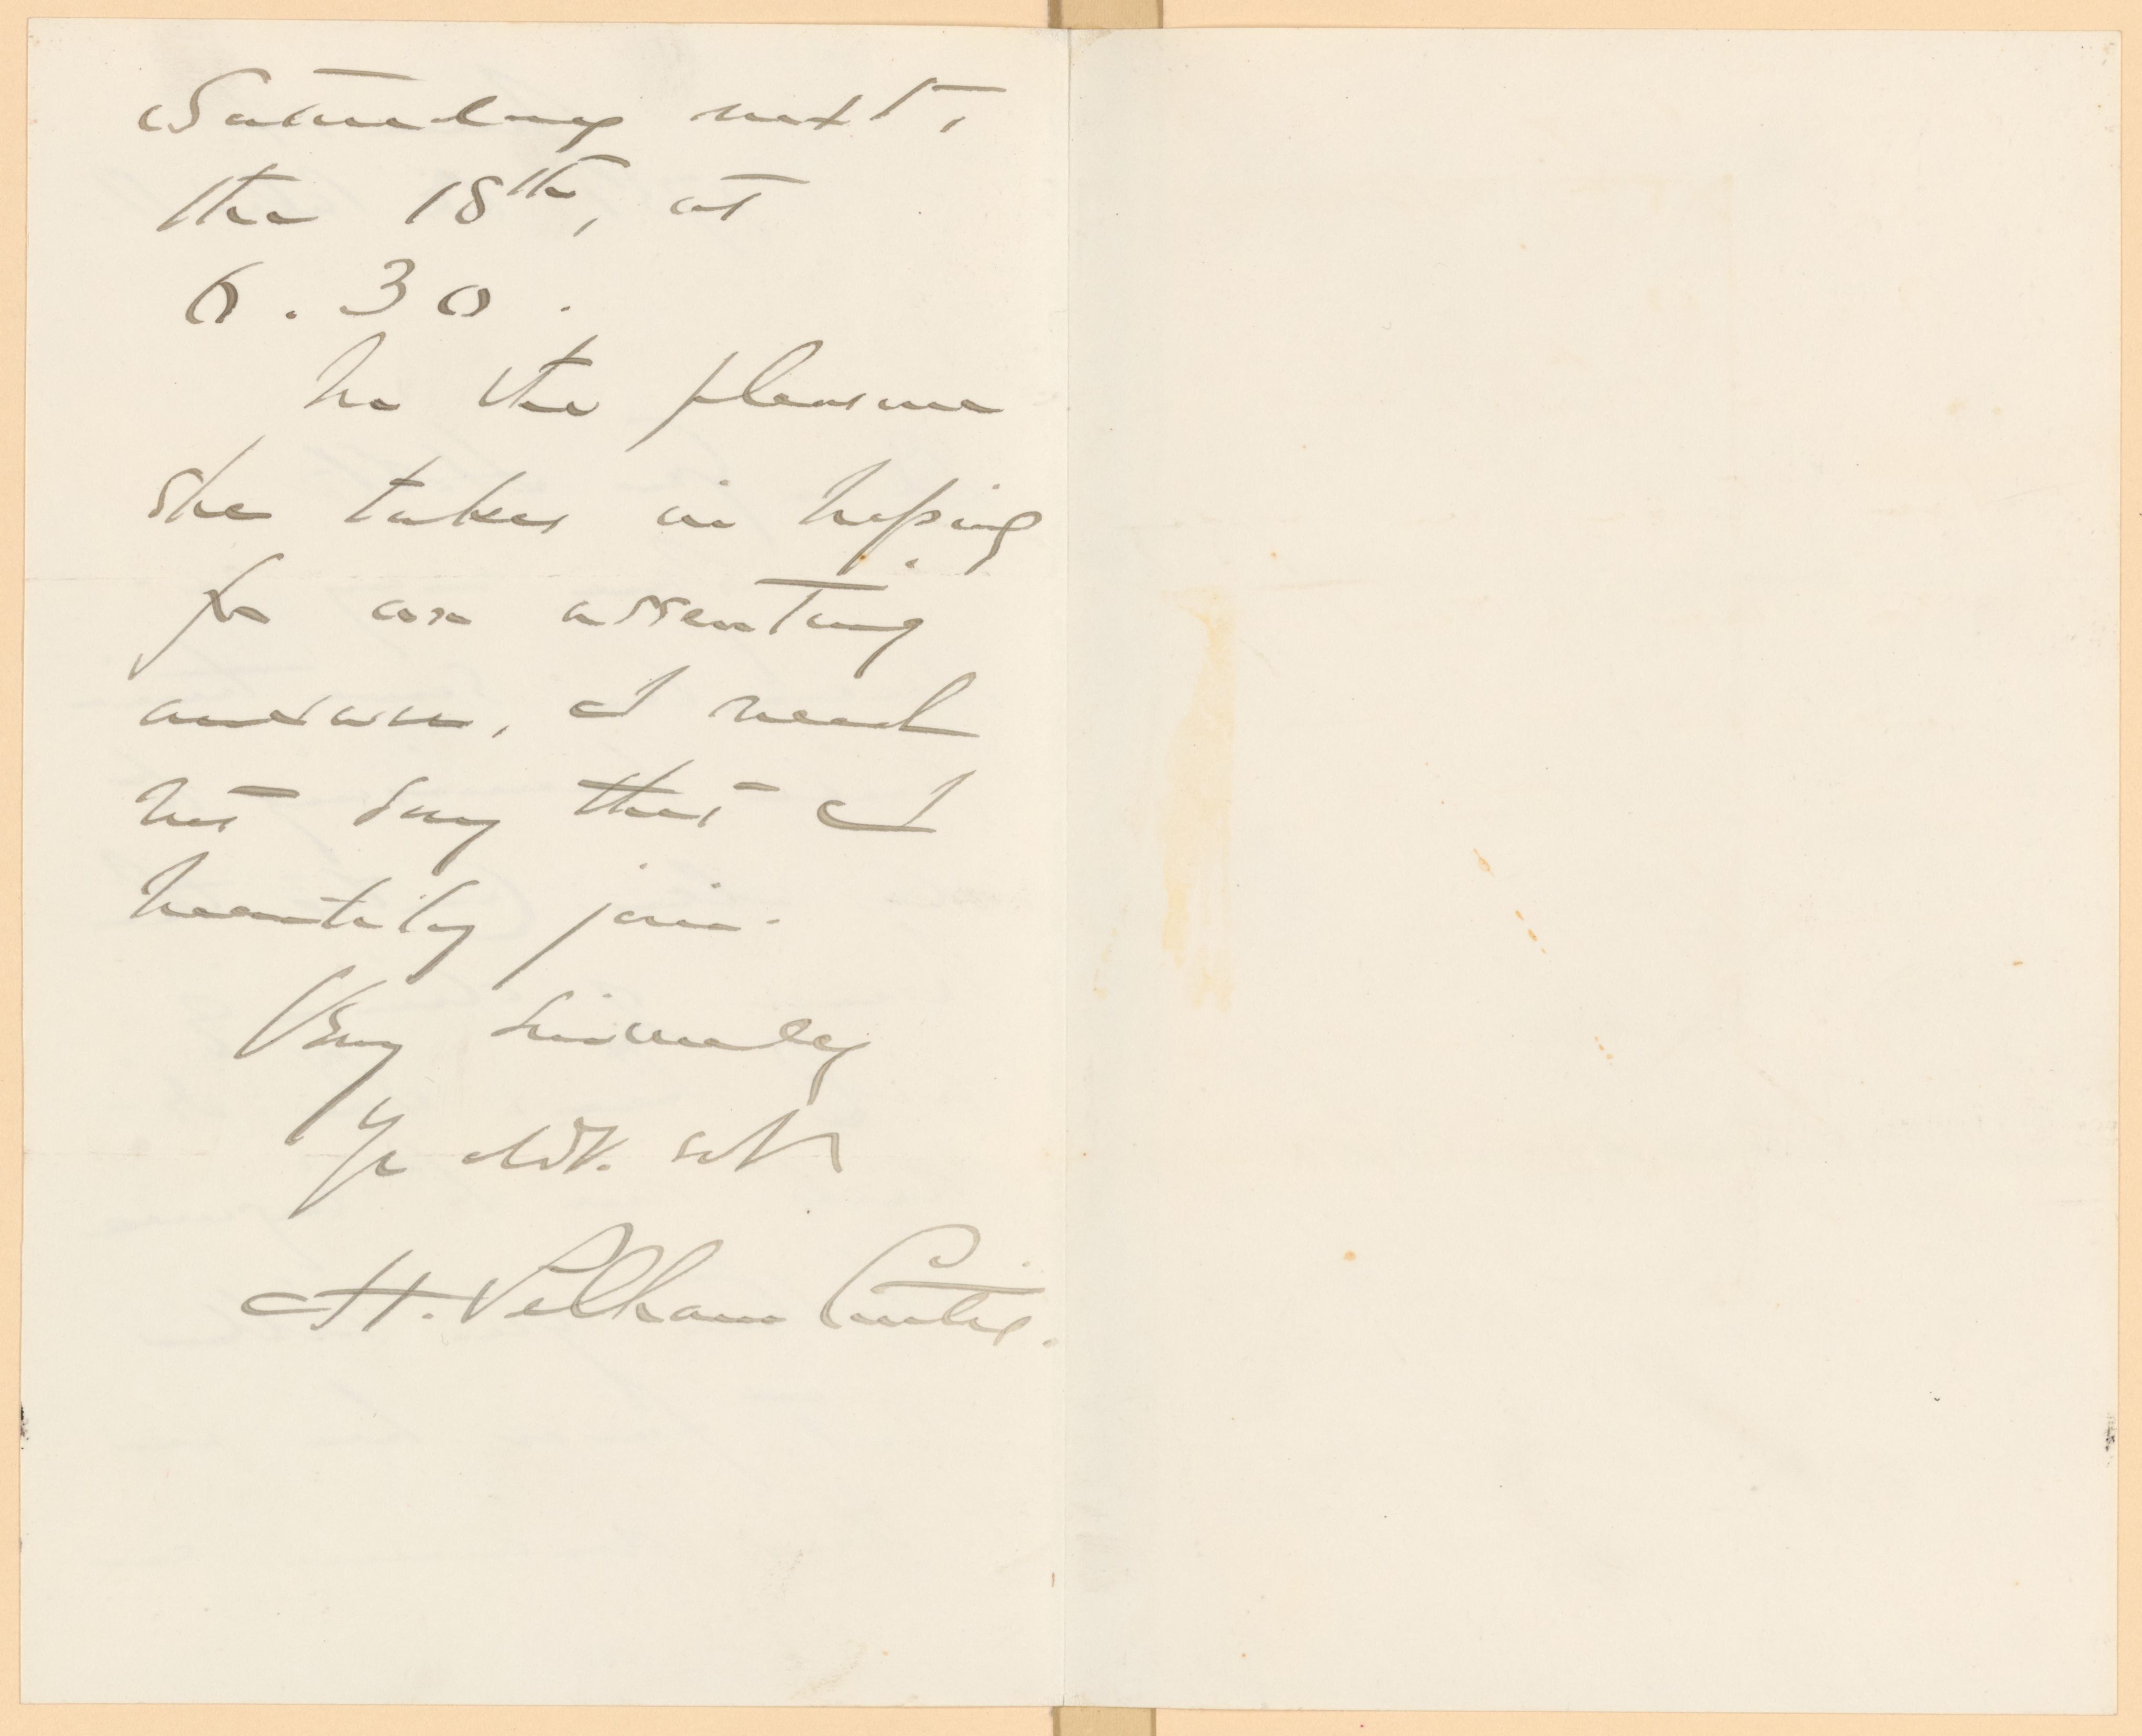 Saturday next,
the 18th, at
6.30.
In the pleasure
she takes in hoping
for an assenting
answer, I need
not say that I
heartily join.
Very sincerely
Yr obt. svt
H. Pelham Curtis.